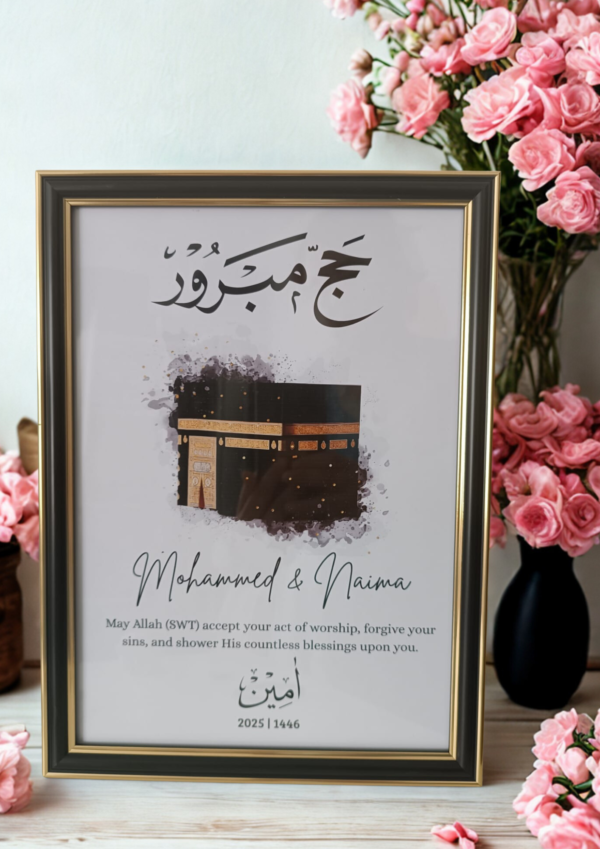 حَجّ مَبْرُور
Mohammed & Naima
May Allah (SWT) accept your act of worship, forgive your
sins, and shower His countless blessings upon you.
اٰمِيْن
2025 | 1446